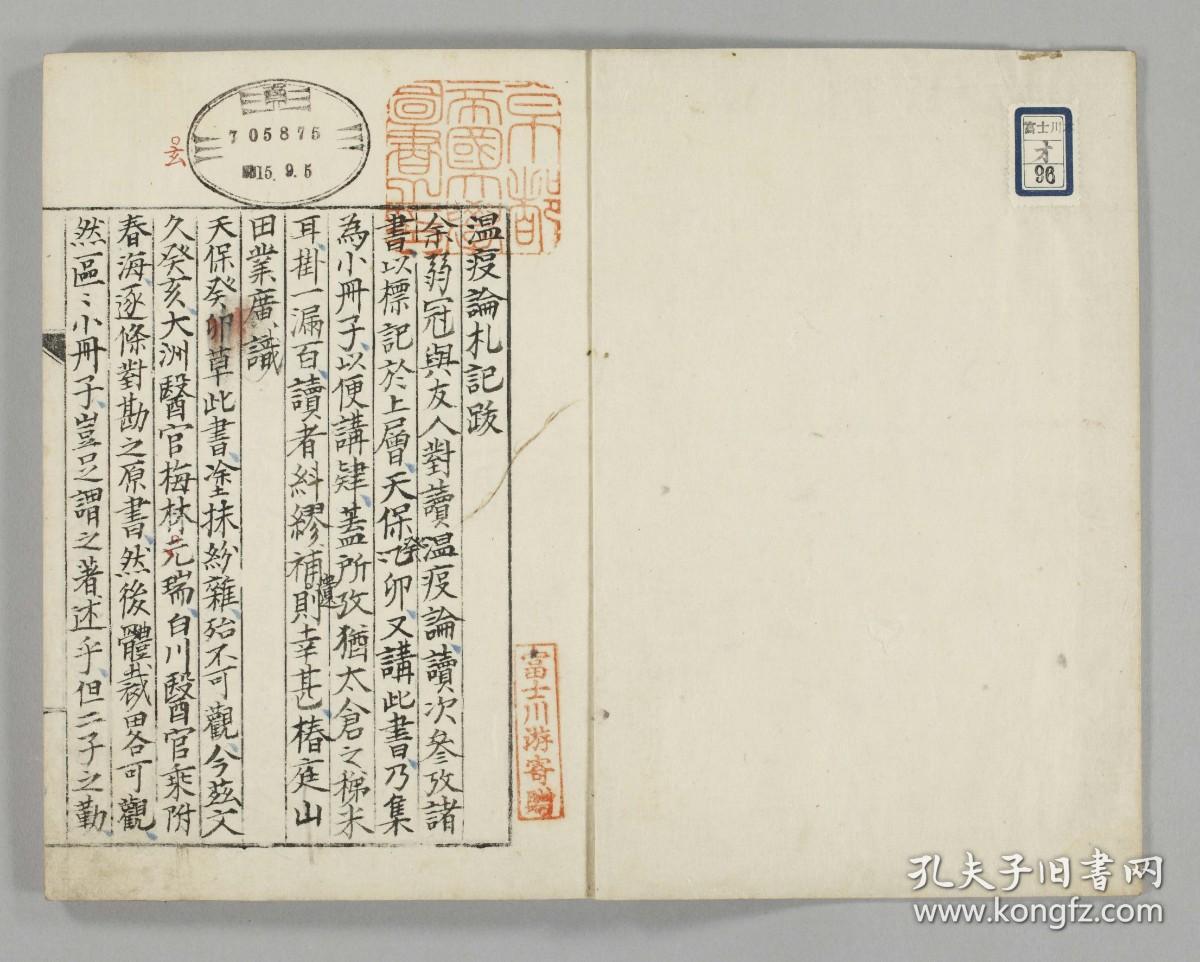 富士川本
オ
96
京都
帝國大學
圖書之印
705875
昭15.9.5
玄
温疫論札記跋
余弱冠與友人對讀温疫論讀次參攷諸
書以標記於上層天保癸卯又講此書乃集
為小冊子以便講肄蓋所攷猶太倉之梯米
耳掛一漏百讀者糾繆補遺則幸甚椿庭山
田業廣識
天保癸卯草此書塗抹紛雜殆不可觀今玆文
久癸亥大洲醫官梅林元瑞白川醫官乘附
春海逐條對勘之原書然後體裁畧可觀
然區〻小冊子豈足謂之著述乎但二子之勤
富士川游寄贈
孔夫子旧书网
www.kongfz.com